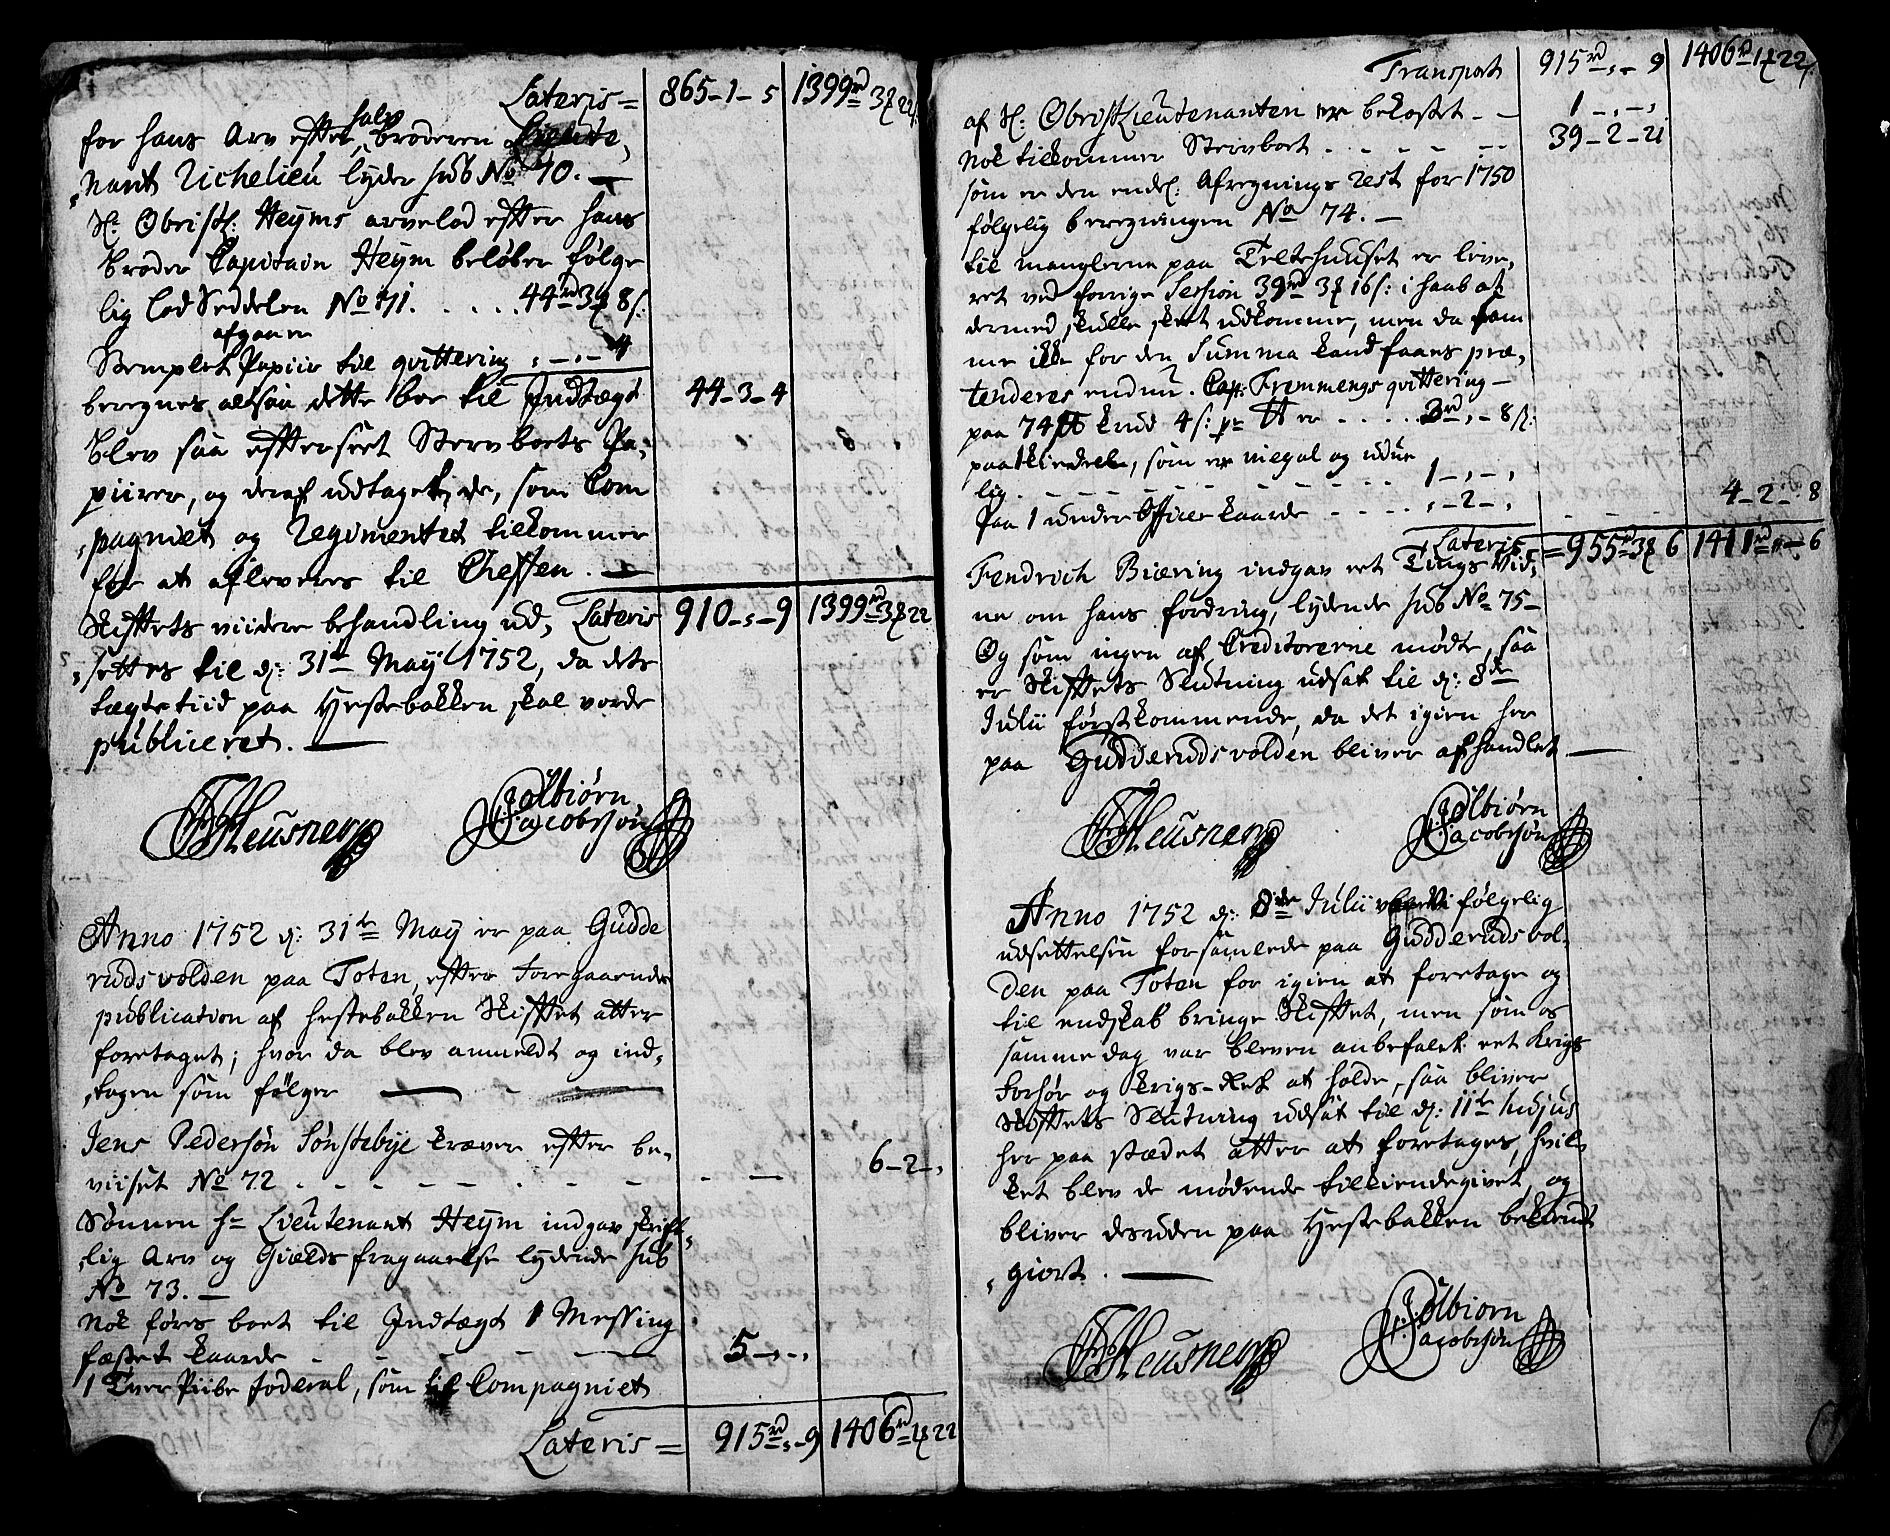 Lateris = 865-1-5 1399rd 3# 22s
for hans Arv efter halv broderen Lieute,
nant Richelieu lyder sub No 70. —
H: Obristl: Heyms arvelod efter hans
broder Capitain Heym beløber følge
lig lod Seddelen No 71. . . . . . 44rd 3# 8s:
afgaaer
Stemplet Papiir til qvittering „ - „ - 4
beregnes altsaa dette her til Indtægt 44-3-4
blev saa efterseet Stervboets Pa,
piirer, og deraf udtaget de, som Com
pagniet og Regimentet tilkommer
for at afleveres til Cheffen. —
Skiftets viidere behandling ud, Lateris 910-„-9 1399rd 3# 22
settes til d: 31te Maij 1752, da dets
tægtetiid paa Hestebakken skal vorde
publiceret. —
FHeusnerg Colbiørn Jacobsøn
Anno 1752 d: 31te Maij er paa Gudde
rudsvolden paa Toten, efter Foregaaende
publication af hestebakken Skiftet atter
foretaget; hvor da blev anmeldt og ind,
tagen som følger —
Jens Pedersøn Sønstebye kræver efter be,
viiset No 72 . - - - - - - 6-2-„
Sønnen hr Lieutenant Heym indgav skrift,
lig Arv og Gields fragaaelse lydende sub
No 73. —
nok føres boet til Indtægt 1 Messing
fæstet kaarde - - - - 5-„-„
1 Tver Piibe foderal, som til Compagniet
Lateris = 915rd-„-9 1406rd 1# 22
Transport 915rd-„-9 1406rd 1# 22s
af H: ObristLieutenanten er bekostet - - 1-„-„
nok tilkommer Stervboet . - - - - 39-2-21
som er den endel: Afregnings rest for 1750
følgelig beregningen No 74. —
til manglerne paa Teltehuuset er leve,
ret ved forrige Session 39rd 3# 16s: i haab at
dermed skulle skeet udkomme, men da sam
me ikke for den Summa kand faaes præ,
tenderes endnu. Cap: Frommengs qvittering —
paa 74 ℔ krud 4s: pr ℔ er - - . . . 3rd „ - 8s:
paatkiendels, som er niegal og udue
lig . - - - - - - - - 1-„-„
Paa 1 under Officer kaarde - - - . . „-2-„ 4-2-8
Lateris = 955rd 3# 6 1411rd „-6
Fendrich Biering indgav et Tings Vid,
ne om hans fordring, lydende sub No 75 —
Og som ingen af Creditorerne mødte, saa
er Skiftets Slutning udsat til d: 8de
Julii førstkommende, da det igien her
paa Gudderudsvolden bliver afhandlet —
FHeusnerg Colbiørn Jacobsøn
Anno 1752 d: 8de Julii følgelig
udsettelsen forsamlede paa Gudderudsvol,
den paa Toten for igien at foretage og
til endskab bringe Skiftet, men som os
samme dag var bleven anbefalet et Krigs
forhør og Krigs-Ret at holde, saa bliver
Skiftets Slutning udsat til d: 11te hujus
her paa stædet atter at foretages, hvil
ket blev de mødende tilkiendegivet, og
bliver desuden paa Hestebakken bekiendt
giort. —
FHeusnerg Colbiorn Jacobsøn